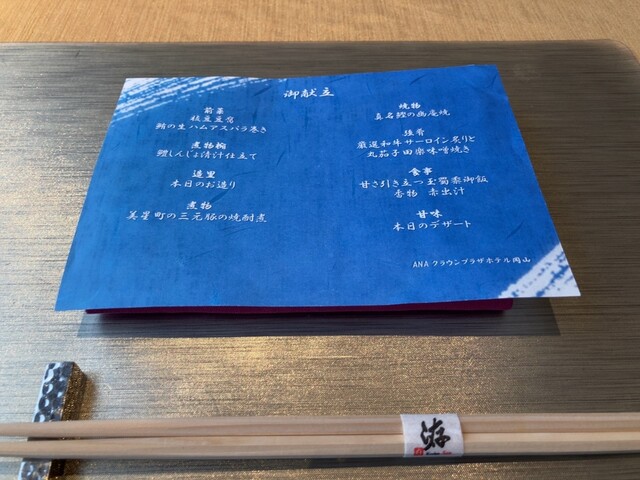 御献立
前菜
枝豆豆腐
鮪の生ハムアスパラ巻き
煮物椀
鱧しんじょ清汁仕立て
造里
本日のお造り
煮物
美星町の三元豚の焼酎煮
焼物
真名鰹の幽庵焼
強肴
厳選和牛サーロイン炙りと
丸茄子田楽味噌焼き
食事
甘さ引き立つ玉蜀黍御飯
香物 赤出汁
甘味
本日のデザート
ANAクラウンプラザホテル岡山
游